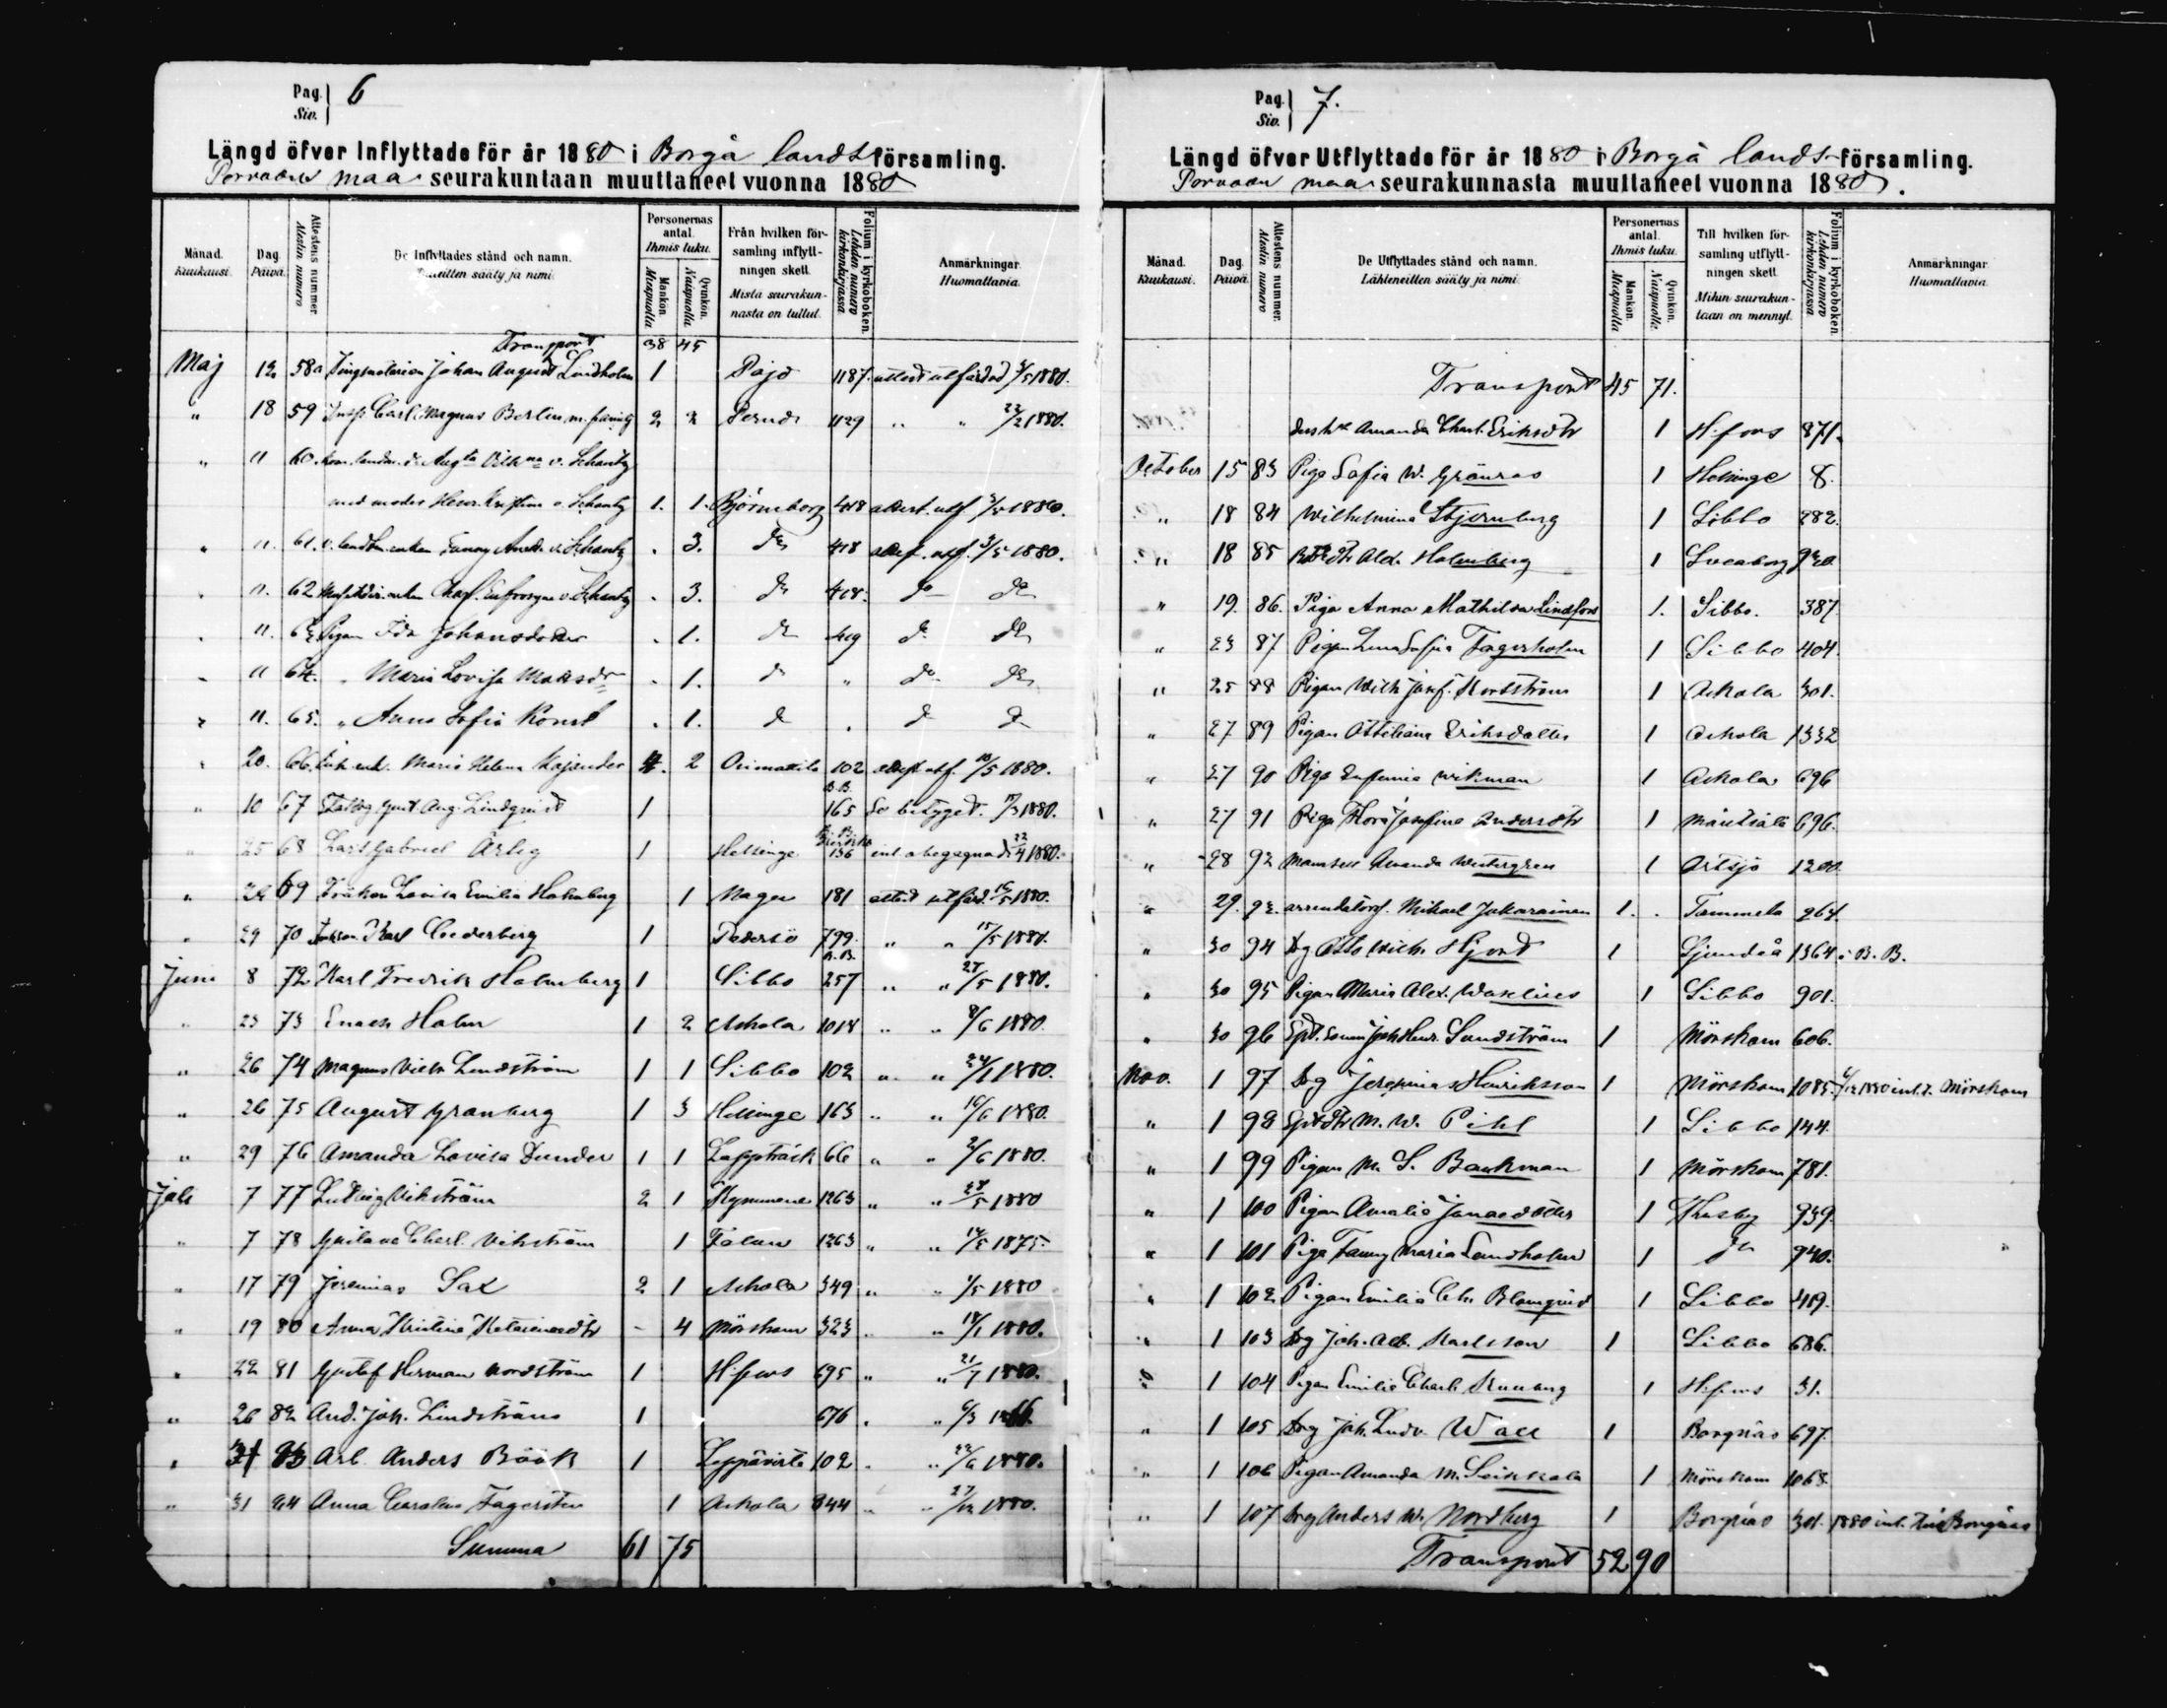 Pag. Siv. 6
Längd öfver Inflyttade för år 1880 i Borgå landsförsamling.
Porvoon maa seurakuntaan muuttaneet vuonna 1880
Månad. Kuukausi.
Dag. Päivä.
Attestens nummer. Alestin numero
De Inflyttades stånd och namn. sääty ja nimi.
Personernas antal. Ihmis luku.
Mankön. Miespuolia
Qvinkön. Naispuolia
Från hvilken församling inflyttningen skett. Mistä seurakunnasta on tullut.
Folium i kyrkoboken. Lehden numero kirkonkirjassa
Anmärkningar. Huomattavia.
Transport 38 45
Maj 12 58a Johan August Lindholm 1 Pojo 1187 attest utfärdad 3/5 1880.
" 18 59 Carl Magnus Berlin m. familj 2 2 Perno 1129 " " 22/2 1880.
" 11 60. v. Schantz
med moder v. Schantz 1. 1. Björneborg 418 attest. utf. 3/5 1880.
" 11. 61. Fanny v. Schantz . 3. do 418 attest. utf. 3/5 1880.
" 11. 62 v. Schantz . 3. do 418. do do
" 11. 63 Pigan Ida Johansdotter . 1. do 419 do do
" 11 64. " Maria Lovisa Matsdr . 1. do " do do
" 11. 65. " Anna Sofia . 1. do . do do
" 20. 66. Maria Helena Kajander 2 Orimattila 102 attest utf. 10/5 1880.
B.B.
" 10 67 Aug. Lindqvist 1 165 Se betyget. 1880.
" 25 68 Lars Gabriel Ärlig 1 Helsinge 136 1880.
" 26 69 Fröken Lovisa Emilia Holmberg 1 Nagu 181 attest utfärd. 16/5 1880.
" 29 70 Karl Cederberg 1 Pedersö 799 " " 15/5 1880.
B.B.
Juni 8 72 Karl Fredrik Holmberg 1 Sibbo 257 " " 27/5 1880.
" 23 73 Enoch Holm 1 2 Askola 1018 " " 8/6 1880.
" 26 74 Magnus Vilh. Lindström 1 1 Sibbo 102 " " 24/1 1880.
" 26 75 August Granberg 1 3 Helsinge 163 " " 16/6 1880.
" 29 76 Amanda Lovisa Dunder 1 1 Lappträsk 66 " " 2/6 1880.
Juli 7 77 Ludvig Vikström 2 1 Kymmene 1263 " " 28/5 1880
" 7 78 Gustava Charl. Vikström 1 1263 " " 1875.
" 17 79 Jeremias Sax 2 1 Askola 349 " " 1/5 1880
" 19 80 Anna Kristina - 4 Mörskom 323 " " 18/1 1880.
" 22 81 Gustaf Herman Nordström 1 H:fors 695 " " 21/7 1880.
" 26 82 And. Joh. Lindström 1 676 . " 6/3
" 31 83 Arb. Anders Böök 1 Leppävirta 102 " " 22/6 1880.
" 31 84 Anna Carolina Fagersten 1 Askola 844 " " 1880.
Summa 61 75
Pag. Siv. 7.
Längd öfver Utflyttade för år 1880 i Borgå lands-församling.
Porvoon maa seurakunnasta muuttaneet vuonna 1880.
Månad. Kuukausi.
Dag. Päivä.
Attestens nummer. Alestin numero
De Utflyttades stånd och namn. Lähteneitten sääty ja nimi.
Personernas antal. Ihmis luku.
Mankön. Miespuolia
Qvinkön. Naispuolia
Till hvilken församling utflyttningen skett. Mihin seurakuntaan on mennyt.
Folium i kyrkoboken. Lehden numero kirkonkirjassa
Anmärkningar. Huomattavia.
Transport 45 71.
Amanda Charl. Eriksdtr 1 H:fors 871.
October 15 83 Piga Sofia W. Granroos 1 Helsinge 8.
" 18 84 Wilhelmina Stjernberg 1 Sibbo 282.
" 18 85 Alex. Holmberg 1 Sveaborg
" 19. 86. Piga Anna Mathilda Lindfors 1. Sibbo. 387
" 23 87 Pigan Lena Sofia Fagerholm 1 Sibbo 404.
" 25 88 Pigan Wilh. Josef. 1 Askola 301.
" 27 89 Pigan Ottiliana Eriksdotter 1 Askola 1332
" 27 90 Piga Eufemia Wikman 1 Askola 696
" 27 91 Piga Flora Josefina Andersdtr 1 Mäntsälä 696.
" 28 92 Mamsell Amanda Westergren 1 Artsjö 1200.
" 29. 93. Mikael Jakarainen 1. . Tammela 264.
" 30 94 Dg Otto Wilh. Hjort 1 Sjundeå 1364 i B. B.
" 30 95 Pigan Maria Alex. 1 Sibbo 901.
" 30 96 Sundström 1 Mörskom 606.
Nov. 1 97 Dg Jeremias Henriksson 1 Mörskom 1085. Mörskom
" 1 98 M. W. Pihl 1 Sibbo 144.
" 1 99 Pigan M. S. Backman 1 Mörskom 781.
" 1 100 Pigan Amalia 1 Thusby 939.
" 1 101 Piga Fanny Maria Landholm 1 do 940.
" 1 102 Pigan Emilia Ch. Blomqvist 1 Sibbo 419.
" 1 103 Dg Joh. Alb. Karlsson 1 Sibbo 686.
" 1 104 Pigan Emilia Charl. 1 H:fors 31.
" 1 105 Dreg Joh. Ludv. Wall 1 Borgnäs 697.
" 1 106 Pigan Amanda M. Seikkala 1 Mörskom 1068.
" 1 107 Dreg Anders W. Nordberg 1 Borgnäs 301. 1880 Borgnäs
Transport 52 90